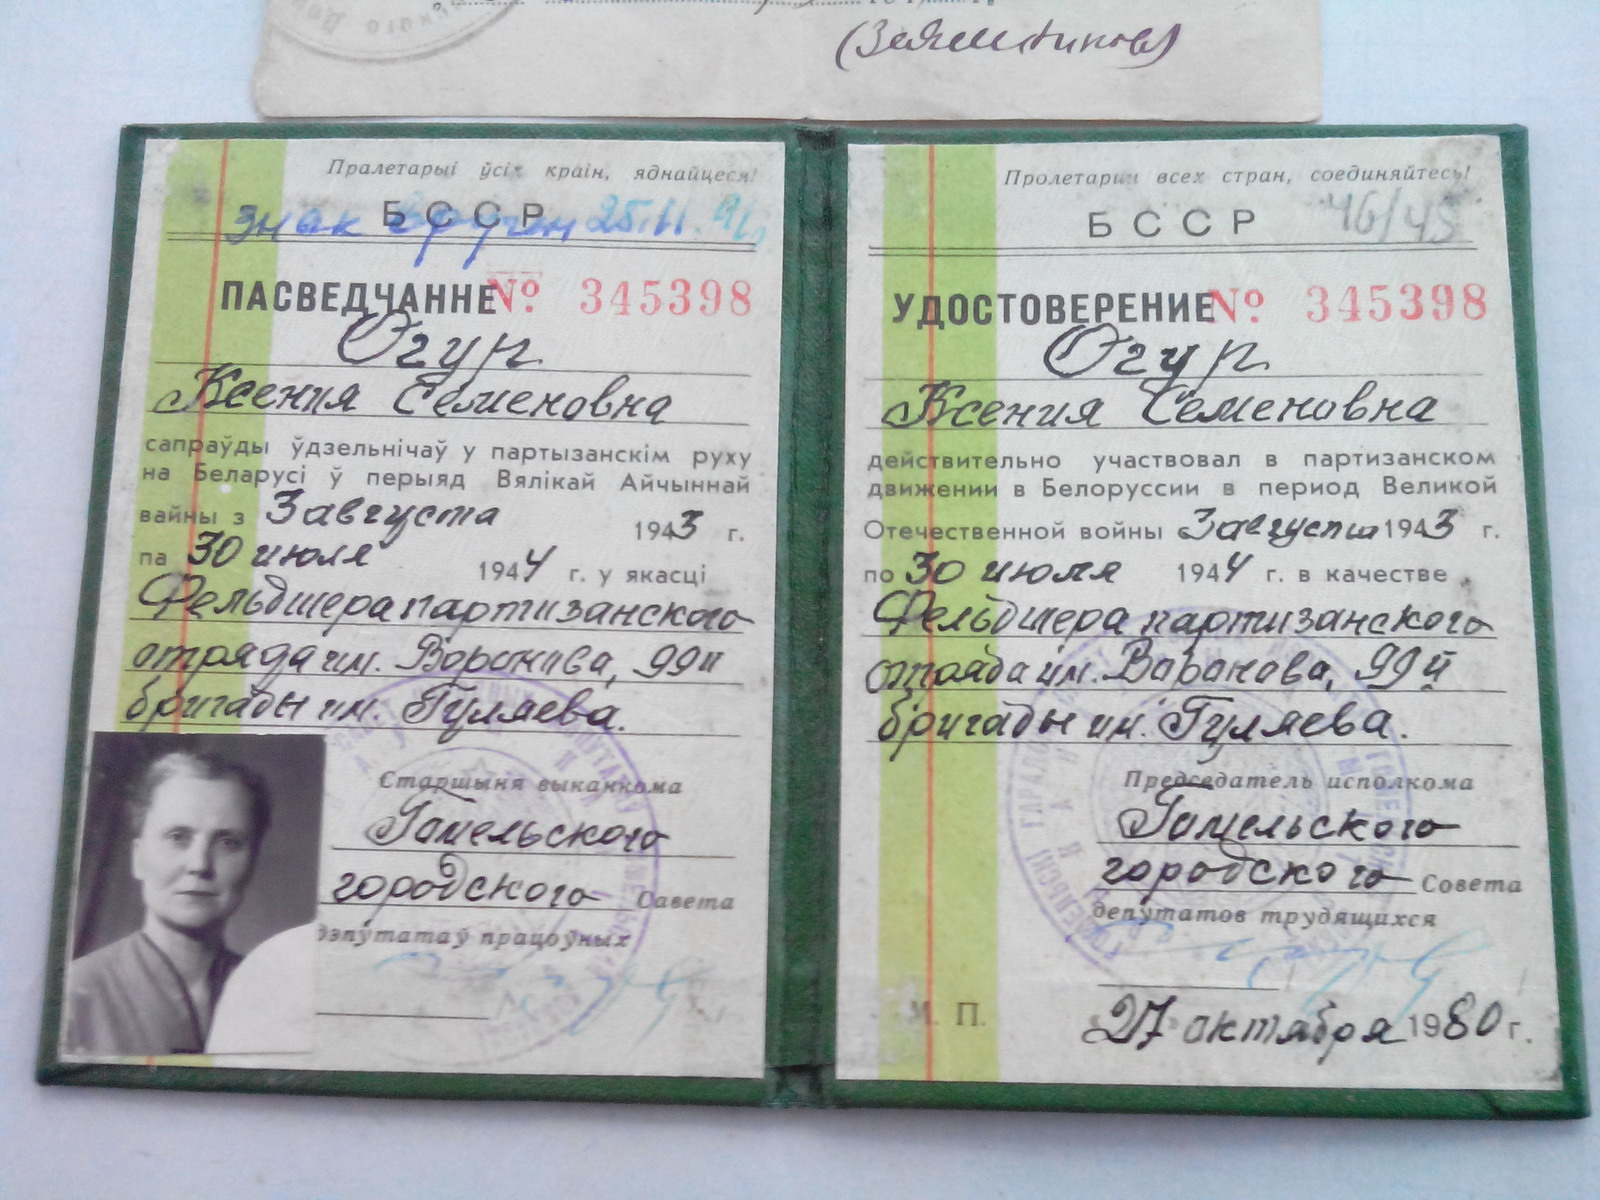 Пралетарыі ўсіх краін, яднайцеся!
БССР
знак вручен 25.11.
ПАСВЕДЧАННЕ № 345398
Огур
Ксения Семеновна
сапраўды ўдзельнічаў у партызанскім руху
на Беларусі ў перыяд Вялікай Айчыннай
вайны з 3 августа 1943 г.
па 30 июля 1944 г. у якасці
Фельдшера партизанского
отряда им. Воронова, 99й
бригады им. Гуляева.
Старшыня выканкома
Гомельского
городского Савета
дэпутатаў працоўных
Пролетарии всех стран, соединяйтесь!
БССР 46/45
УДОСТОВЕРЕНИЕ № 345398
Огур
Ксения Семеновна
действительно участвовал в партизанском
движении в Белоруссии в период Великой
Отечественной войны с 3 августа 1943 г.
по 30 июля 1944 г. в качестве
Фельдшера партизанского
отряда им. Воронова, 99й
бригады им. Гуляева.
Председатель исполкома
Гомельского
городского Совета
депутатов трудящихся
М. П.
27 октября 1980 г.